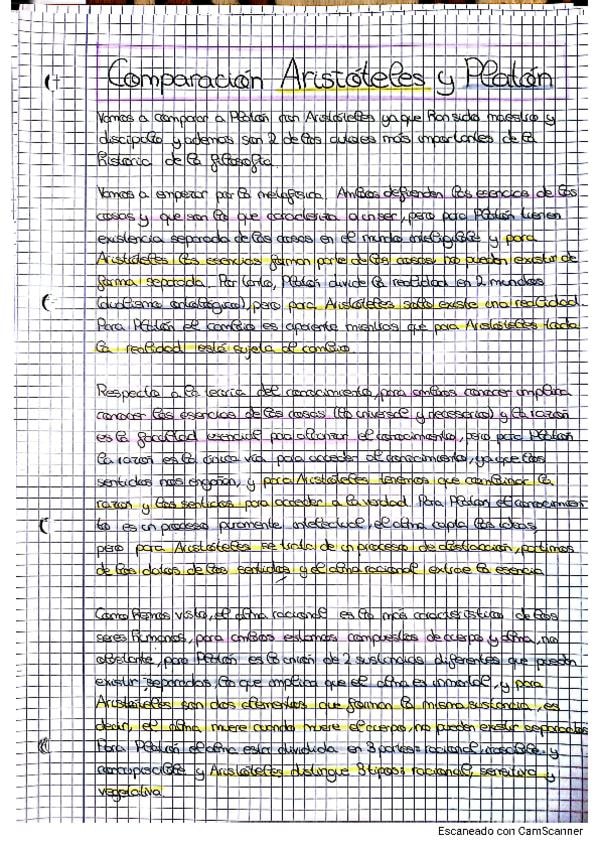 Comparación Aristóteles y Platón
Vamos a comparar a Platón con Aristóteles ya que han sido maestro y
discípulo y además son 2 de los autores más importantes de la
historia de la filosofía.
Vamos a empezar por la metafísica. Ambos defienden las esencias de las
cosas y que son lo que caracteriza a un ser, pero para Platón tienen
existencia separada de las cosas en el mundo inteligible y para
Aristóteles las esencias forman parte de las cosas, no pueden existir de
forma separada. Por tanto, Platón divide la realidad en 2 mundos
(dualismo ontológico), pero para Aristóteles solo existe una realidad.
Para Platón el cambio es aparente mientras que para Aristóteles toda
la realidad está sujeta al cambio.
Respecto a la teoría del conocimiento, para ambos conocer implica
conocer las esencias de las cosas (lo universal y necesario) y la razón
es la facultad esencial para alcanzar el conocimiento, pero para Platón
la razón es la única vía para acceder al conocimiento, ya que los
sentidos nos engañan, y para Aristóteles tenemos que combinar la
razón y los sentidos para acceder a la verdad. Para Platón el conocimien-
to es un proceso puramente intelectual, el alma capta las ideas,
pero para Aristóteles se trata de un proceso de abstracción, partimos
de los datos de los sentidos y el alma racional extrae la esencia
Como hemos visto, el alma racional es lo más característico de los
seres humanos, para ambos estamos compuestos de cuerpo y alma, no
obstante, para Platón es la unión de 2 sustancias diferentes que pueden
existir separadas, lo que implica que el alma es inmortal, y para
Aristóteles son dos elementos que forman la misma sustancia, es
decir, el alma muere cuando muere el cuerpo, no pueden existir separados
Para Platón el alma está dividida en 3 partes: racional, irascible y
concupiscible y Aristóteles distingue 3 tipos: racional, sensitiva y
vegetativa.
Escaneado con CamScanner